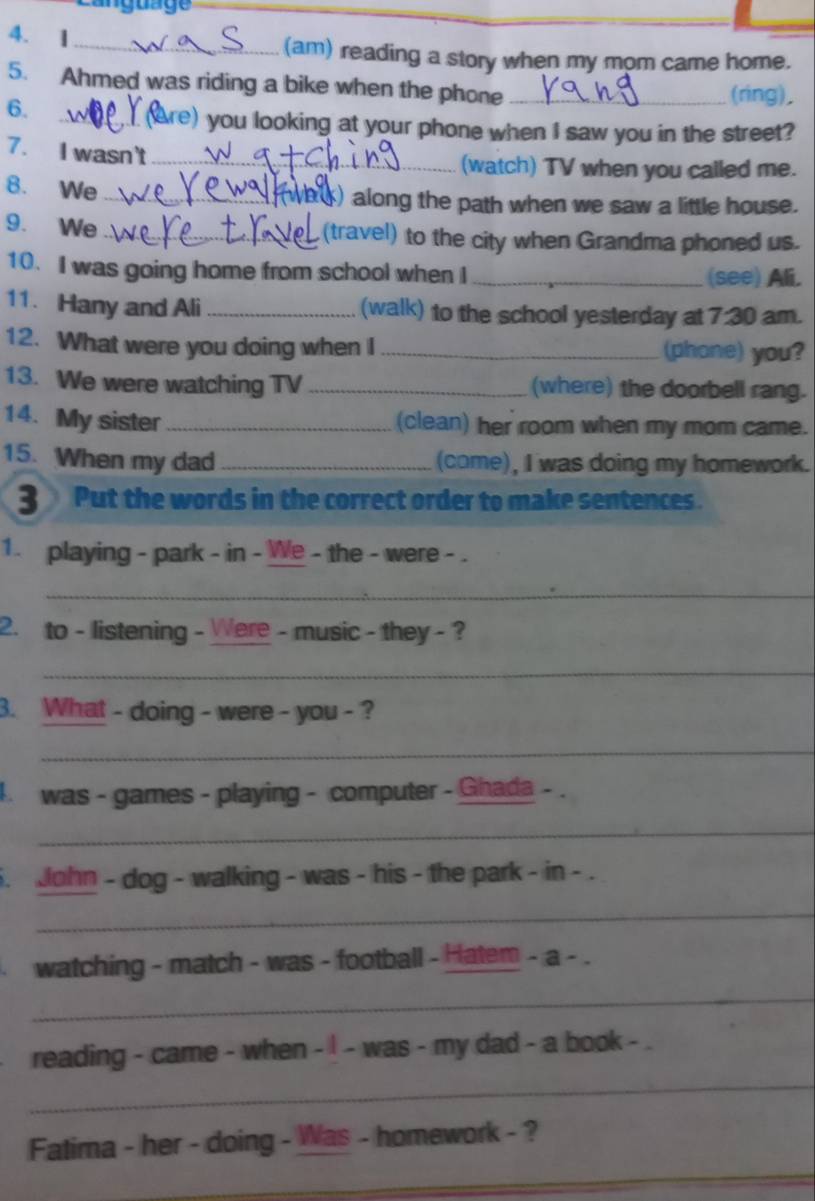 Language
4. I was (am) reading a story when my mom came home.
5. Ahmed was riding a bike when the phone rang (ring).
6. were (are) you looking at your phone when I saw you in the street?
7. I wasn't watching (watch) TV when you called me.
8. We were walking (walk) along the path when we saw a little house.
9. We were travel (travel) to the city when Grandma phoned us.
10. I was going home from school when I (see) Ali.
11. Hany and Ali (walk) to the school yesterday at 7:30 am.
12. What were you doing when I (phone) you?
13. We were watching TV (where) the doorbell rang.
14. My sister (clean) her room when my mom came.
15. When my dad (come), I was doing my homework.
3 Put the words in the correct order to make sentences.
1. playing - park - in - We - the - were - .
2. to - listening - Were - music - they - ?
3. What - doing - were - you - ?
was - games - playing - computer - Ghada - .
John - dog - walking - was - his - the park - in - .
watching - match - was - football - Hatem - a - .
reading - came - when - I - was - my dad - a book - .
Fatima - her - doing - Was - homework - ?